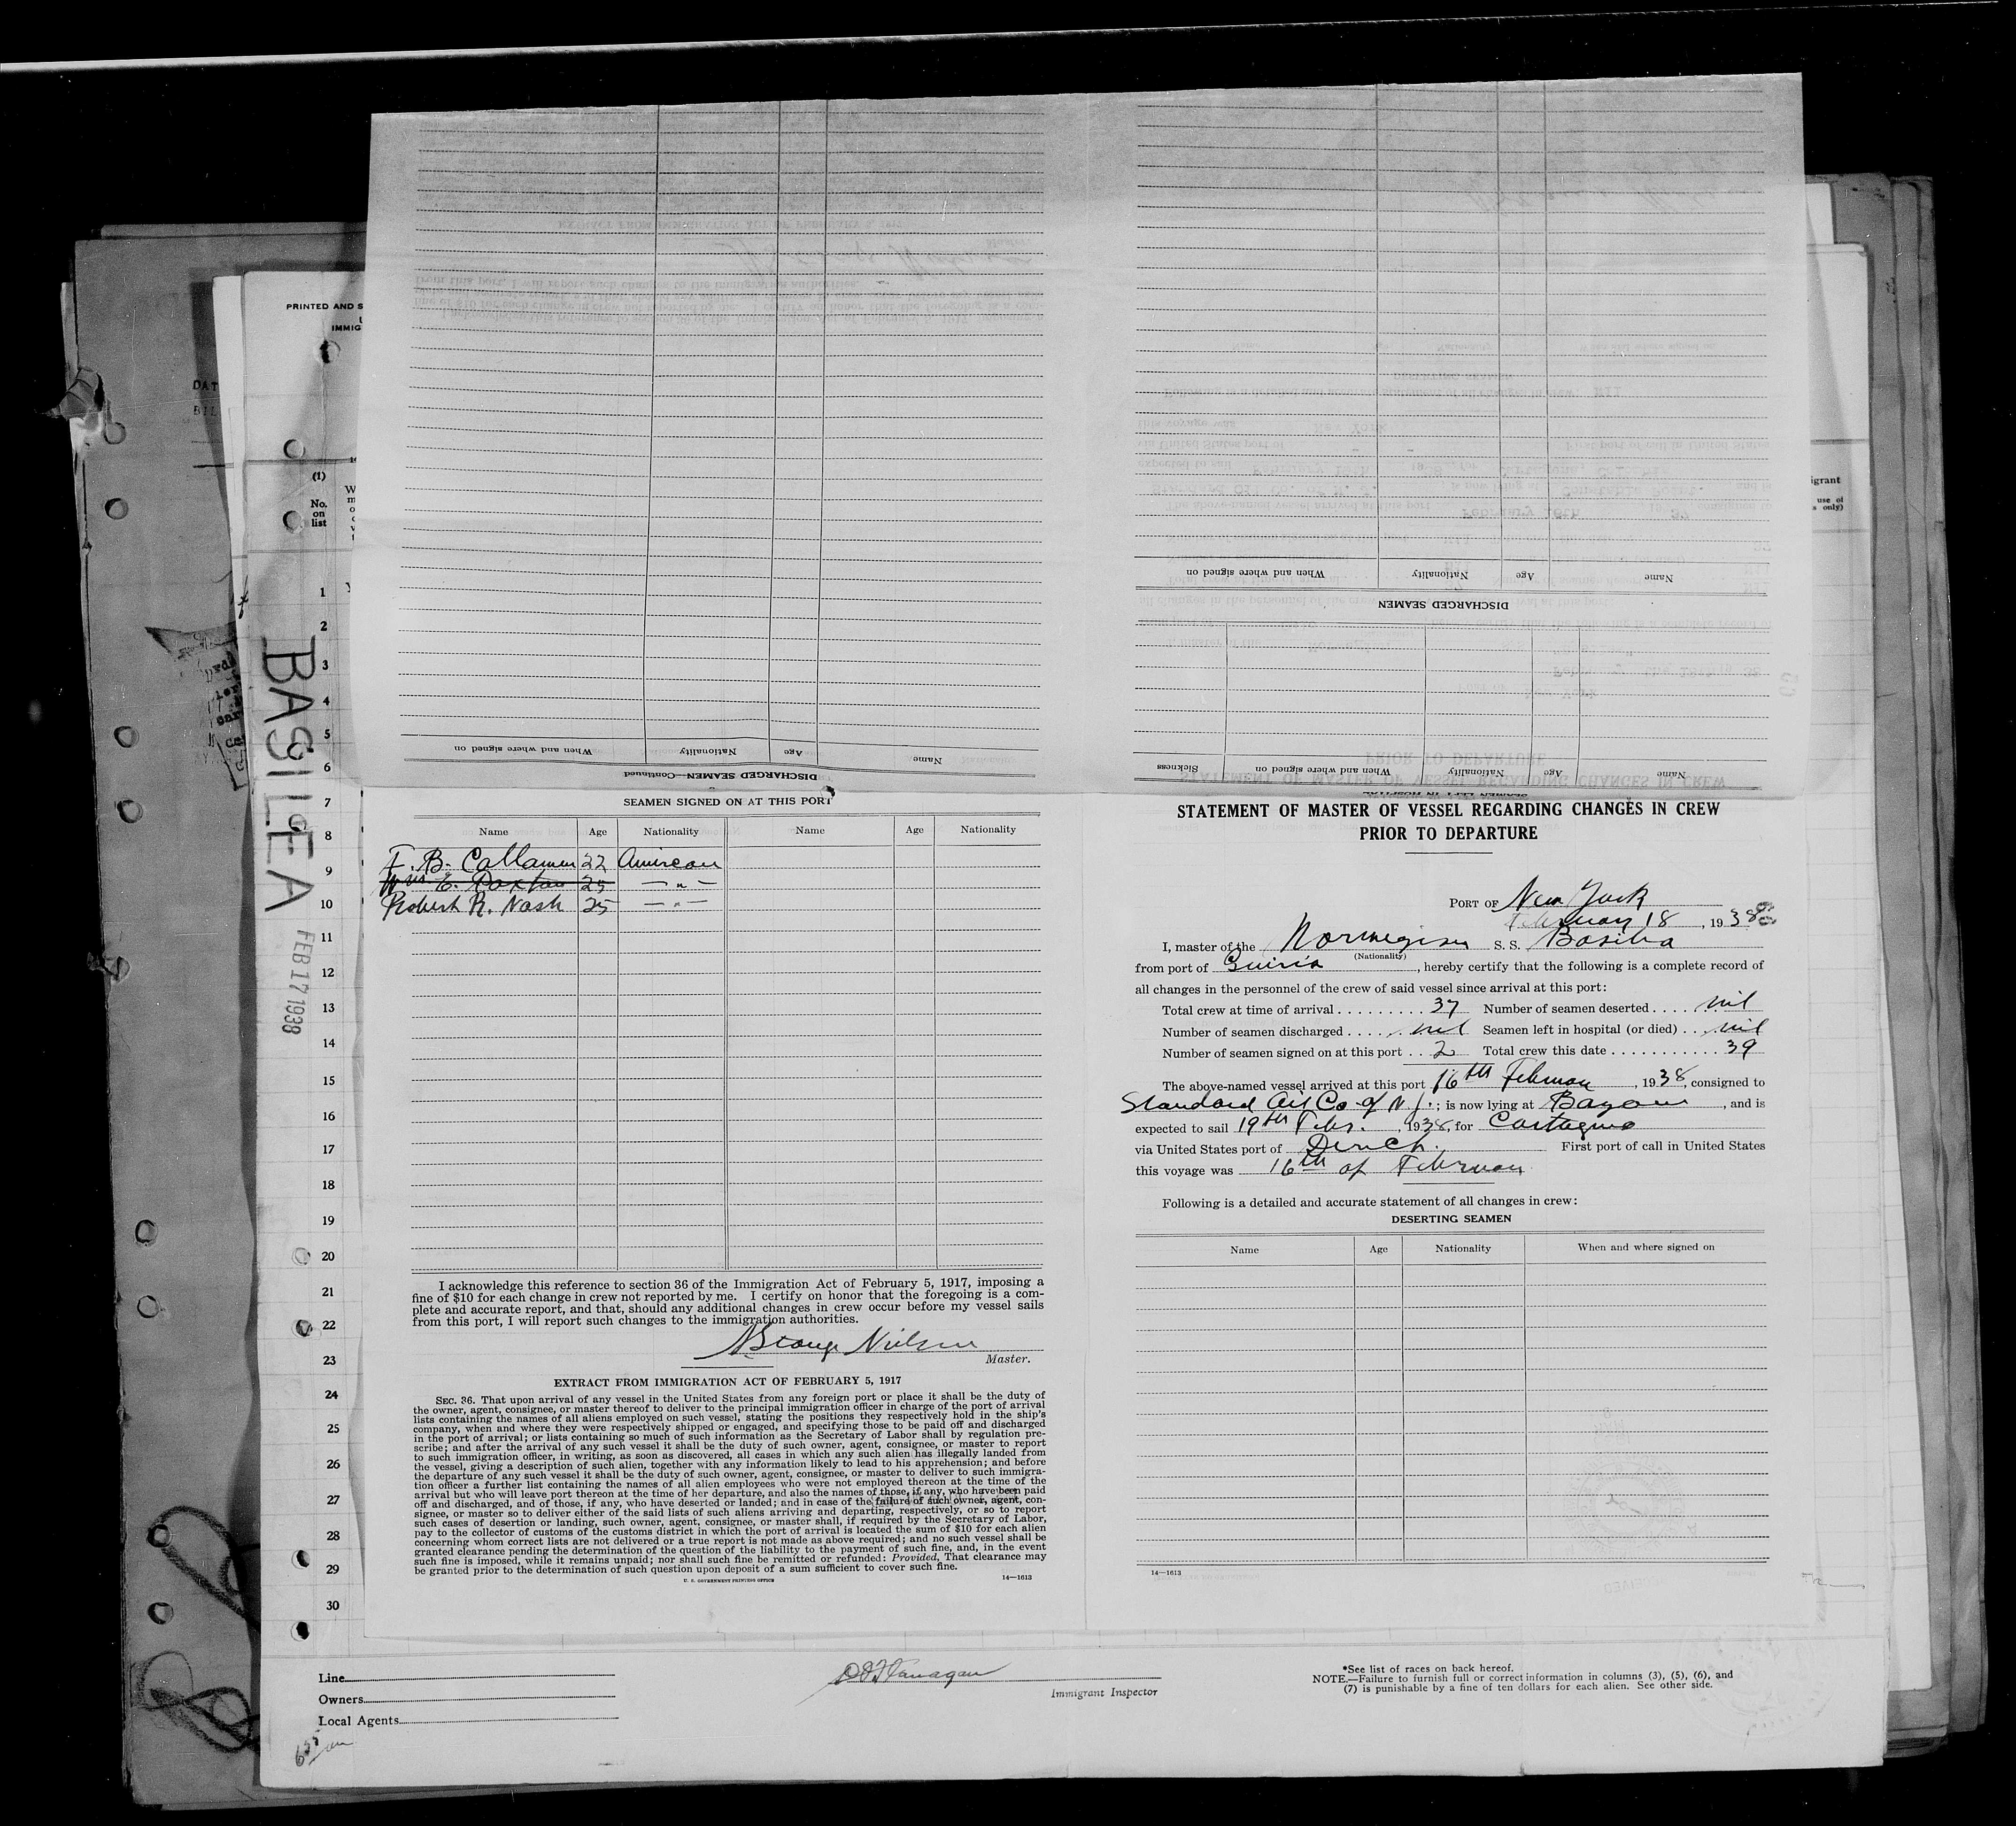 PRINTED AND S
IMMIG
DAT
(1)
No.
on
list
igrant
use of
s only)
1
2
3
4
5
6
7
8
9
10
11
12
13
14
15
16
17
18
19
20
21
22
23
24
25
26
27
28
29
30
BASILEA
FEB 17 1938
DISCHARGED SEAMEN—Continued
Name Age Nationality When and where signed on
Name Age Nationality When and where signed on Sickness
DISCHARGED SEAMEN
Name Age Nationality When and where signed on
SEAMEN SIGNED ON AT THIS PORT
Name Age Nationality Name Age Nationality
F. B. Callamen 22 American
Wm E. Paxton 25 — " —
Robert R. Nash 25 — " —
I acknowledge this reference to section 36 of the Immigration Act of February 5, 1917, imposing a
fine of $10 for each change in crew not reported by me. I certify on honor that the foregoing is a com-
plete and accurate report, and that, should any additional changes in crew occur before my vessel sails
from this port, I will report such changes to the immigration authorities.
Nielsen
Master.
EXTRACT FROM IMMIGRATION ACT OF FEBRUARY 5, 1917
SEC. 36. That upon arrival of any vessel in the United States from any foreign port or place it shall be the duty of
the owner, agent, consignee, or master thereof to deliver to the principal immigration officer in charge of the port of arrival
lists containing the names of all aliens employed on such vessel, stating the positions they respectively hold in the ship's
company, when and where they were respectively shipped or engaged, and specifying those to be paid off and discharged
in the port of arrival; or lists containing so much of such information as the Secretary of Labor shall by regulation pre-
scribe; and after the arrival of any such vessel it shall be the duty of such owner, agent, consignee, or master to report
to such immigration officer, in writing, as soon as discovered, all cases in which any such alien has illegally landed from
the vessel, giving a description of such alien, together with any information likely to lead to his apprehension; and before
the departure of any such vessel it shall be the duty of such owner, agent, consignee, or master to deliver to such immigra-
tion officer a further list containing the names of all alien employees who were not employed thereon at the time of the
arrival but who will leave port thereon at the time of her departure, and also the names of those, if any, who have been paid
off and discharged, and of those, if any, who have deserted or landed; and in case of the failure of such owner, agent, con-
signee, or master so to deliver either of the said lists of such aliens arriving and departing, respectively, or so to report
such cases of desertion or landing, such owner, agent, consignee, or master shall, if required by the Secretary of Labor,
pay to the collector of customs of the customs district in which the port of arrival is located the sum of $10 for each alien
concerning whom correct lists are not delivered or a true report is not made as above required; and no such vessel shall be
granted clearance pending the determination of the question of the liability to the payment of such fine, and, in the event
such fine is imposed, while it remains unpaid; nor shall such fine be remitted or refunded: Provided, That clearance may
be granted prior to the determination of such question upon deposit of a sum sufficient to cover such fine.
U. S. GOVERNMENT PRINTING OFFICE 14—1613
STATEMENT OF MASTER OF VESSEL REGARDING CHANGES IN CREW
PRIOR TO DEPARTURE
PORT OF New York
February 18, 1938
I, master of the Norwegian S. S. Basilea
(Nationality)
from port of Guiria, hereby certify that the following is a complete record of
all changes in the personnel of the crew of said vessel since arrival at this port:
Total crew at time of arrival . . . . . . . . . 37 Number of seamen deserted . . . . nil
Number of seamen discharged . . . . nil Seamen left in hospital (or died) . . nil
Number of seamen signed on at this port . . 2 Total crew this date . . . . . . . . . . . 39
The above-named vessel arrived at this port 16th February, 1938, consigned to
Standard Oil Co of N. J.; is now lying at Bayonne, and is
expected to sail 19th Febr., 1938, for Cartagena
via United States port of Direct. First port of call in United States
this voyage was 16th of February
Following is a detailed and accurate statement of all changes in crew:
DESERTING SEAMEN
Name Age Nationality When and where signed on
14—1613
Line
Owners
Local Agents
Flanagan
Immigrant Inspector
*See list of races on back hereof.
NOTE.—Failure to furnish full or correct information in columns (3), (5), (6), and
(7) is punishable by a fine of ten dollars for each alien. See other side.